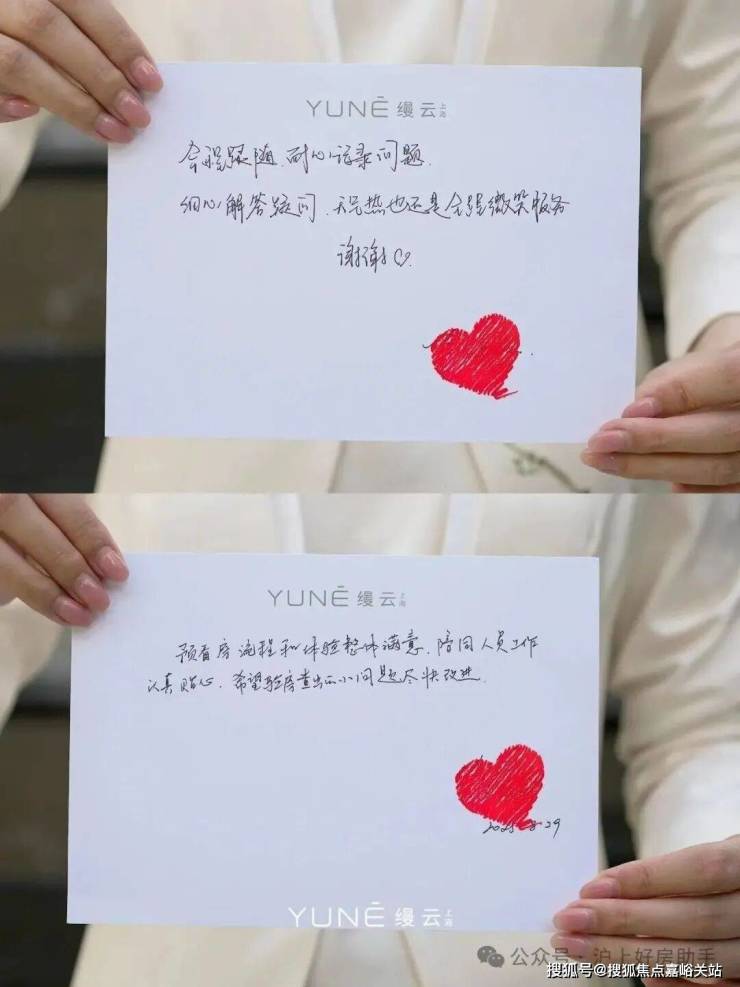 YUNÉ 缦云 上海
全程跟随、耐心记录问题.
细心解答疑问、天气热也还是全程微笑服务
谢谢♡.
YUNÉ 缦云 上海
预看房流程和体验整体满意,陪同人员工作
认真贴心,希望验房查出的小问题尽快改进.
2025-8-29
YUNÉ 缦云 上海
公众号·沪上好房助手
搜狐号@搜狐焦点嘉峪关站